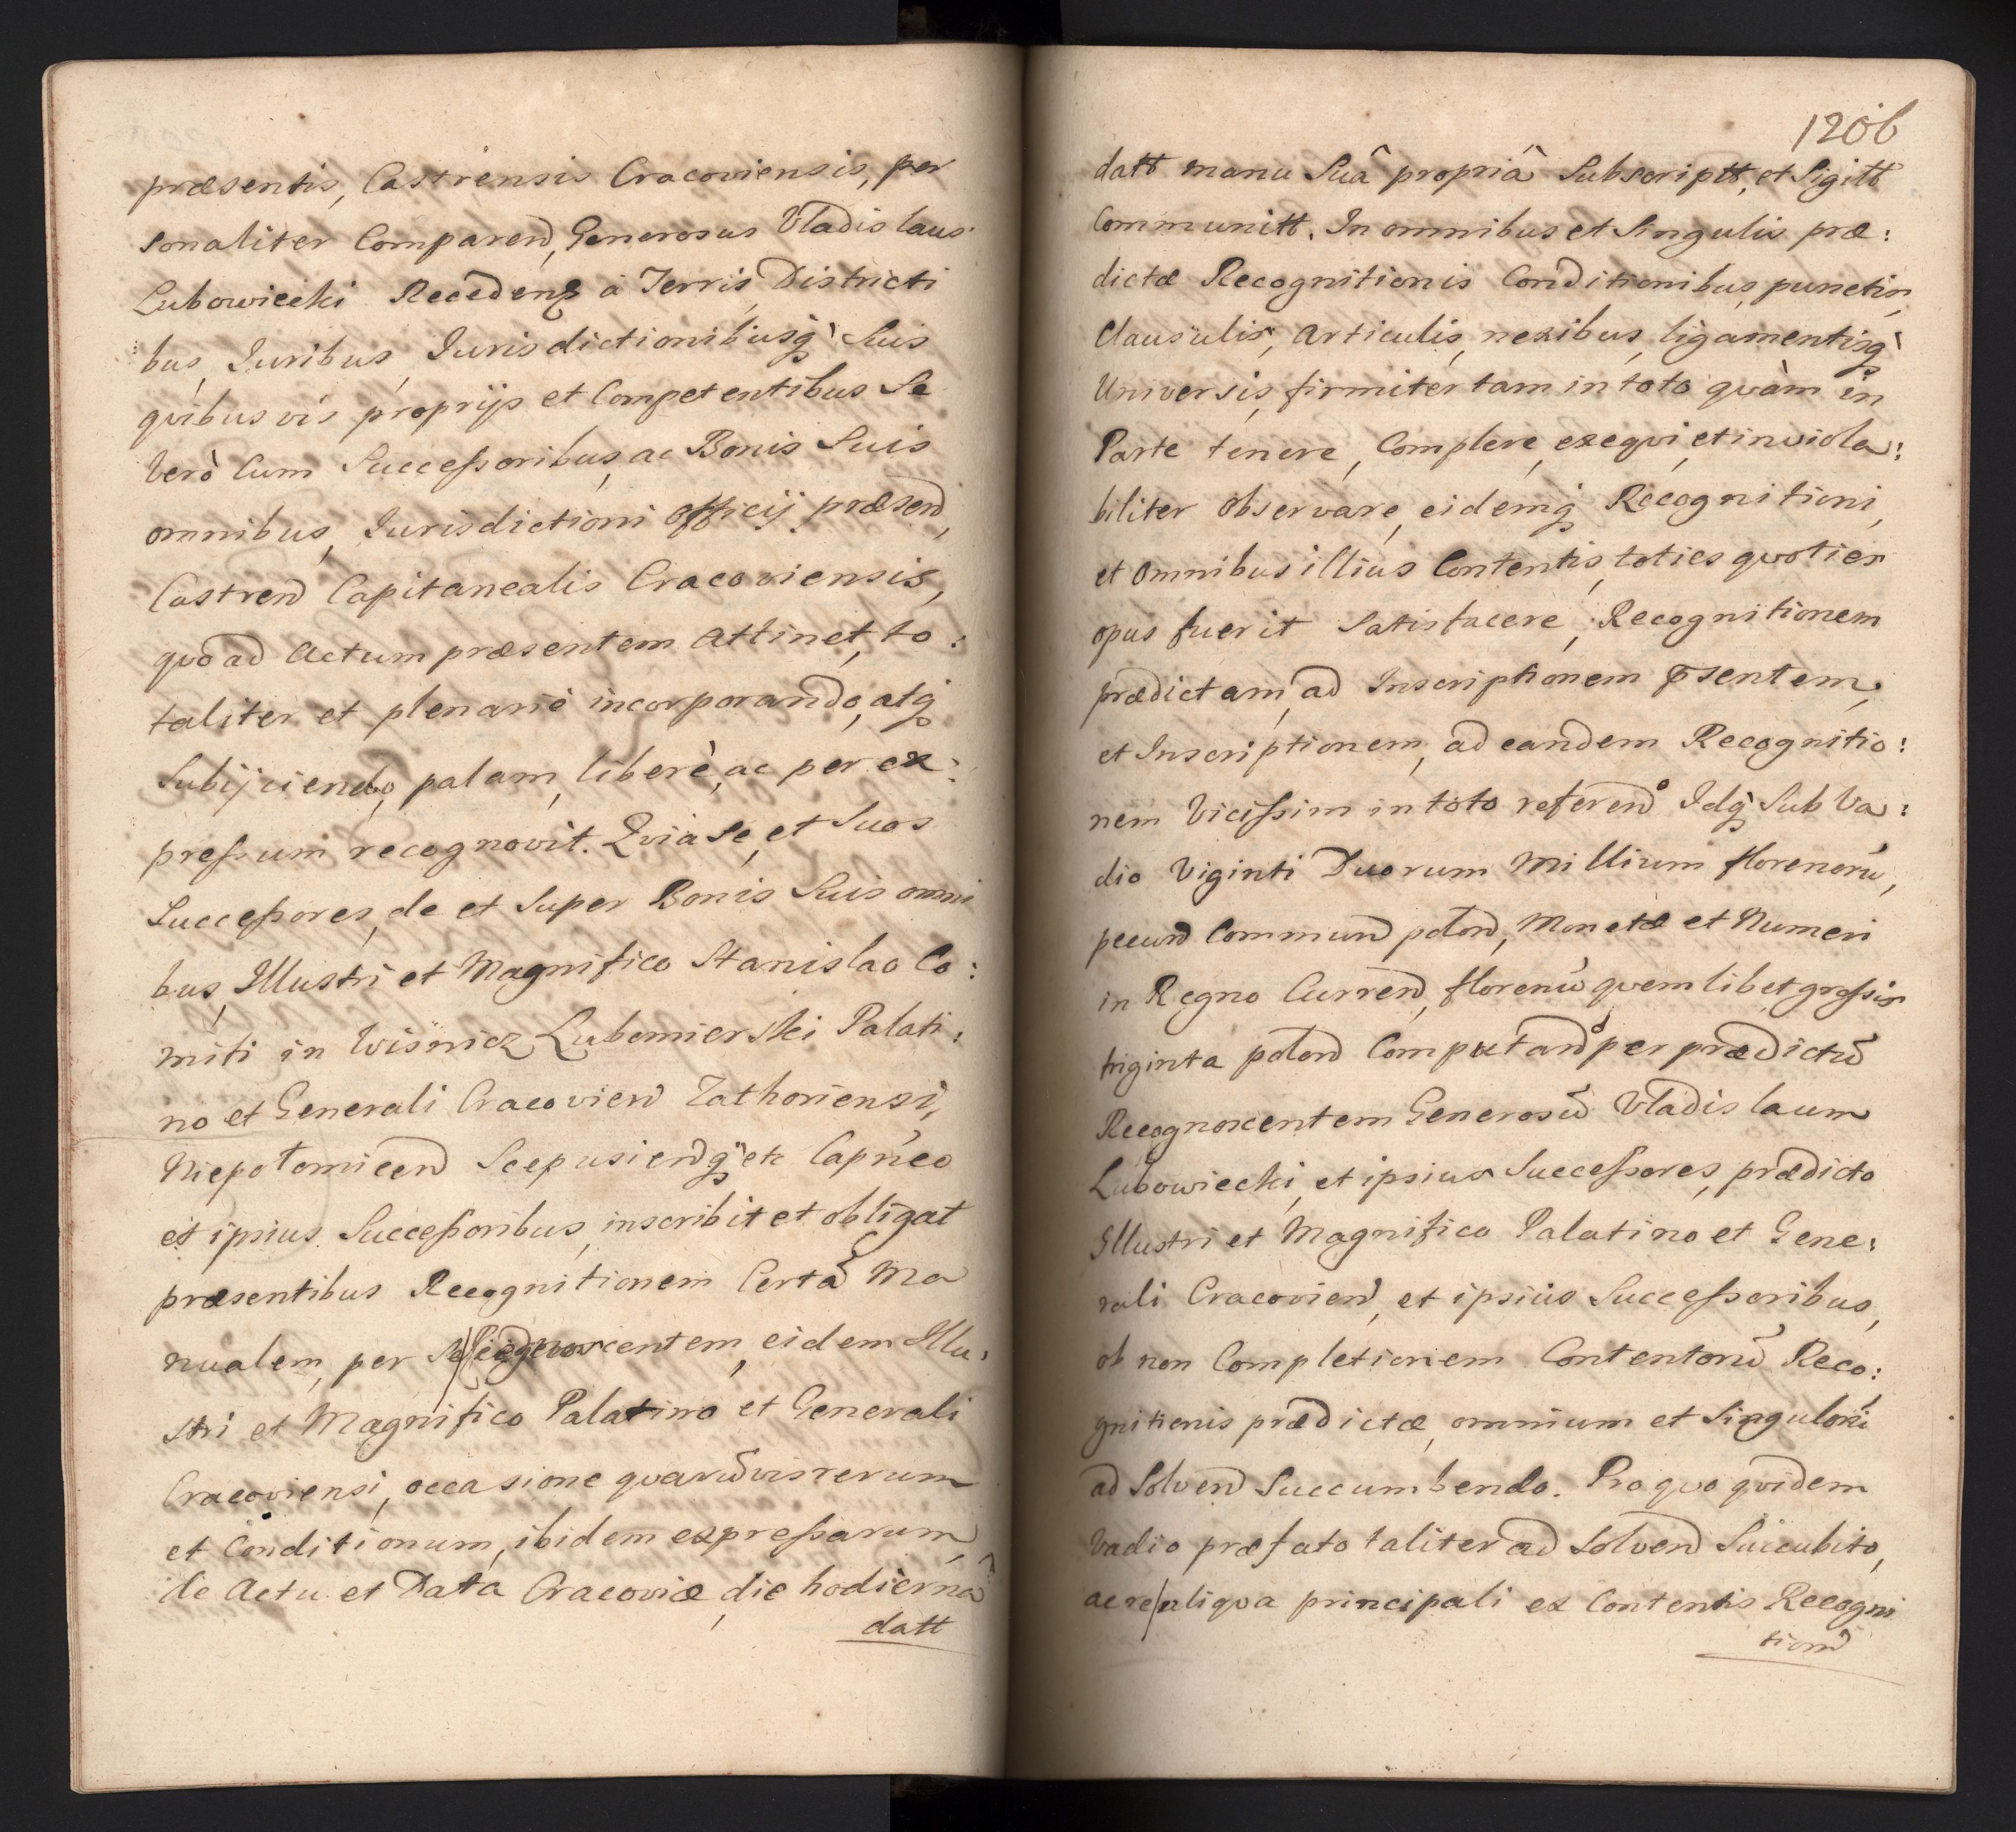 præsentis, Castrensis Cracoviensis, per
sonaliter Comparend, Generosus Vladislaus
Lubowiecki Recedens à Terris, Districti
bus, Iuribus, Iurisdictionibusq́ Suis
quibusvis proprijs et Competentibus Se
verò Cum Successoribus, ac Bonis Suis
omnibus, Iurisdictioni Officij præsend,
Castrend Capitanealis Cracoviensis,
quo ad Actum præsentem attinet, to:
taliter et plenariè incorporando, atq́
Subijciendo, palam, liberè, ac per ex:
pressum recognovit. Quia Se, et Suos
Successores, de et Super Bonis Suis omni
bus, Illustri et Magnifico Stanislao Co:
miti in Wisnicz Lubomierski Palati:
no et Generali Cracoviend Zathoriensi,
Niepolomicend Scepusiendq́ etc Capneo
et ipsius Successoribus, inscribit et obligat
præsentibus Recognitionem Certã Ma
nualem, per Se Recognoscentem, eidem Illu:
stri et Magnifico Palatino et Generali
Cracoviensi, occasione quarũvis rerum
et Conditionum, ibidem expressarum,
de Actu et Data Cracoviæ, die hodierna
datt
1206
datt manu Suâ propriâ Subscriptt, et Sigitt
Communitt. In omnibus et Singulis præ:
dictæ Recognitionis Conditionibus, punctis,
Clausulis, Articulis, nexibus, ligamentisq́
Universis, firmiter tam in toto quàm in
Parte tenere, Complere, exequi, et inviola:
biliter observare, eidemq́ Recognitioni,
et omnibus illius Contentis, toties quoties
opus fuerit Satisfacere, Recognitionem
prædictam, ad Inscriptionem p̄sentem,
et Inscriptionem, ad eandem Recognitio:
nem Vicissim in toto referendo Idq́ Sub Va:
dio Viginti Duorum Millium florenorũ,
pecund Commund polond, Monetæ et Numeri
in Regno Currend, florenũ quemlibet grossis
triginta polond Computando per prædictũ
Recognoscentem Generosũ Vladislaum
Lubowiecki, et ipsius Successores, prædicto
Illustri et Magnifico Palatino et Gene:
rali Cracoviend, et ipsius Successoribus,
ob non Completionem Contentorũ Reco:
gnitionis prædictæ, omnium et Singulorũ
ad Solvend Succumbendo. Pro quo quidem
Vadio præfato taliter ad Solvend Succubito,
ac reliqua principali ex Contentis Recogni
tiond